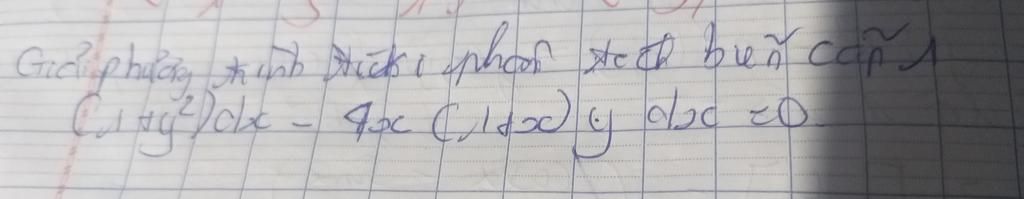 Giải phương trình tích phân tách biến căn 1
(1+y²)dx - 4x(1+x)y dx = 0